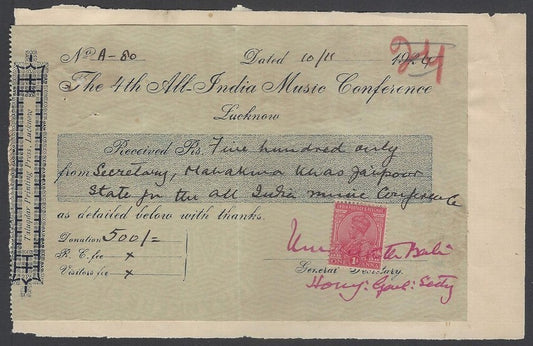 No A-80 Dated 10/11 1924
24
The 4th All-India Music Conference
Lucknow
Received Rs. Five hundred only
from Secretary, Mahakma Khas Jaipur
State for the All India Music Conference
as detailed below with thanks.
Donation 500/=
R. C. fee x
Visitors fee x
General Secretary.
Hony: Genl: Secty
Taluqdar Printing Press, Lucknow